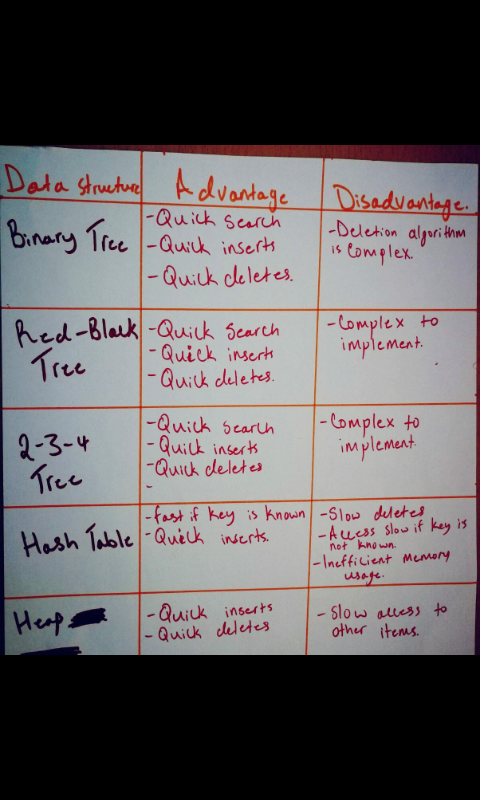 Data structure
Advantage
Disadvantage.
Binary Tree
-Quick search
-Quick inserts
-Quick deletes.
-Deletion algorithm
is complex.
Red-Black
Tree
-Quick search
-Quick inserts
-Quick deletes.
-Complex to
implement.
2-3-4
Tree
-Quick search
-Quick inserts
-Quick deletes
-
-Complex to
implement.
Hash Table
-fast if key is known
-Quick inserts.
-Slow deletes
-Access slow if key is
not known.
-Inefficient memory
usage.
Heap
-Quick inserts
-Quick deletes
-Slow access to
other items.